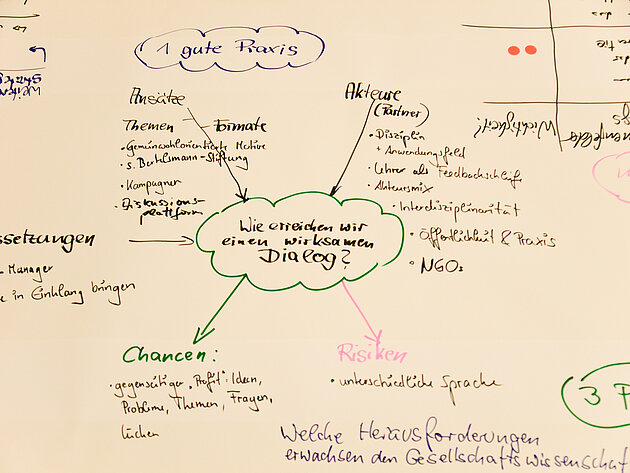 1 gute Praxis
Ansätze
Themen
Formate
• Gemeinwohlorientierte Motive
• s. Bertelsmann-Stiftung
• Kampagnen
• Diskussions-
plattform
Akteure
(Partner)
• Disziplin
+ Anwendungsfeld
• Lehrer als Feedbackschleife
• Akteursmix
• Interdisziplinarität
• Öffentlichkeit & Praxis
• NGOs
Wichtigkeit?
ssetzungen
Manager
in Einklang bringen
Wie erreichen wir
einen wirksamen
Dialog?
Chancen:
• gegenseitiger "Profit": Ideen,
Probleme, Themen, Fragen,
Lücken
Risiken
• unterschiedliche Sprache
3 F
Welche Herausforderungen
erwachsen den Gesellschaftswissenschaf